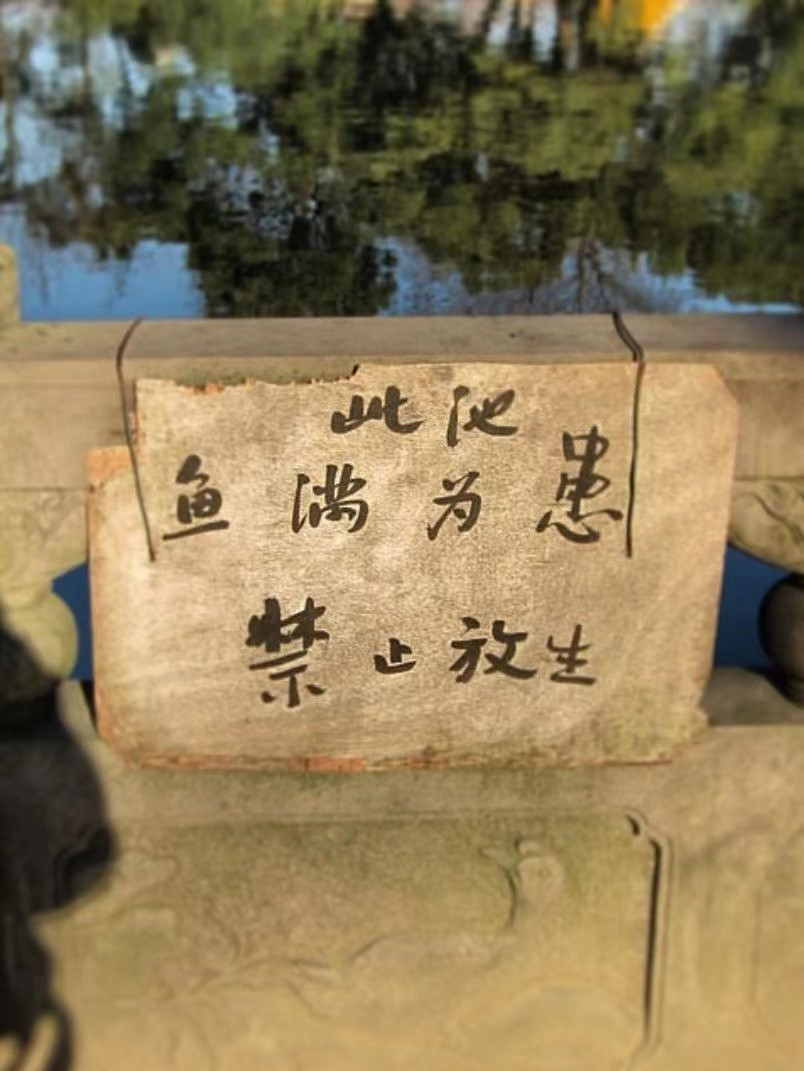 此池
鱼满为患
禁止放生